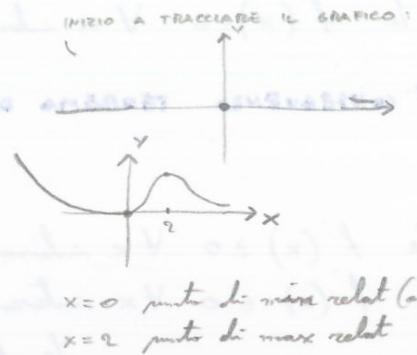 INIZIO A TRACCIARE IL GRAFICO:
Y
Y
2
X
x=0 punto di min relat (a
x=2 punto di max relat